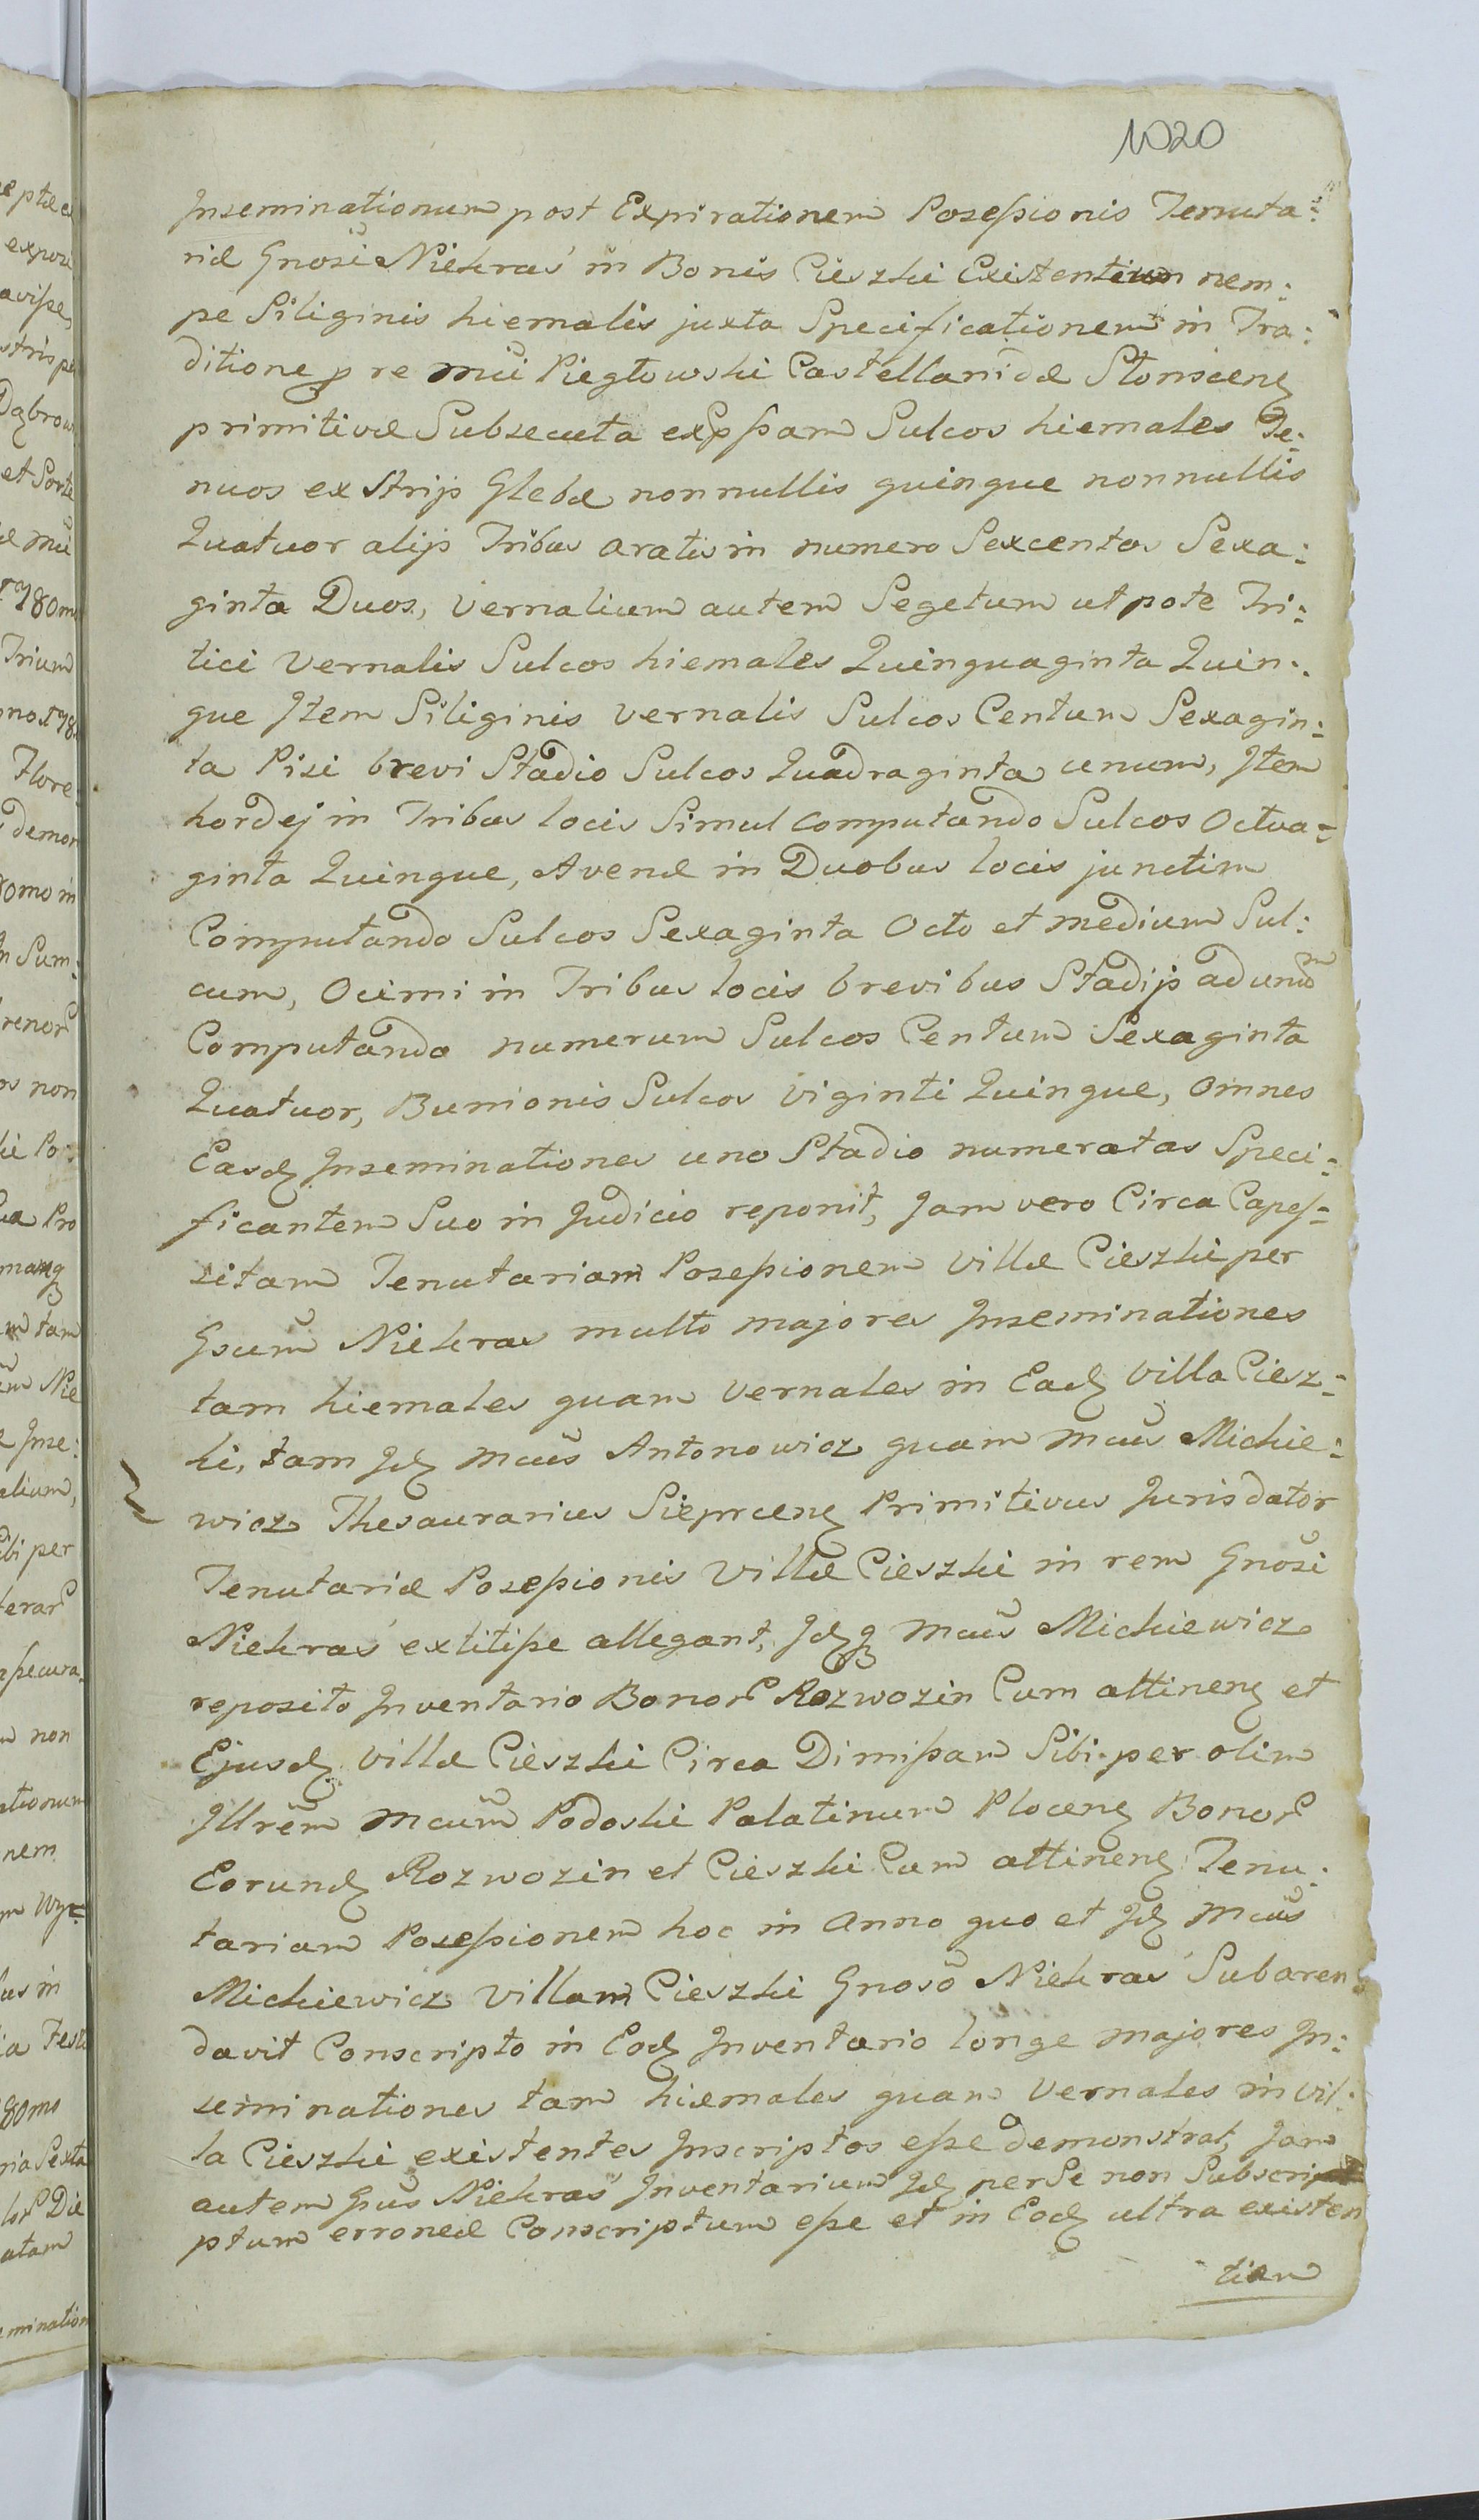 1020
Inseminationum post Expirationem Posessionis Tenuta:
riæ Gnosi Niekraś in Bonis Cieszki Existentium nem:
pe Siliginis hiemalis juxta Specificationem in Tra:
ditione p re Mci Piegłowski Castellanidæ Słonscen
primitivæ Subsecuta expssam Sulcos hiemales Te:
nuos ex Strijs Glebæ nonnullis quinque nonnullis
Quatuor alijs Tribus aratis in numero Sexcentos Sexa:
ginta Duos, Vernalium autem Segetum ut pote Tri:
tici Vernalis Sulcos hiemales Quinquaginta Quin:
que Item Siliginis Vernalis Sulcos Centum Sexagin:
ta Pisi brevi Stadio Sulcos Quadraginta unum, Item
hordej in Tribus locis Simul Computando Sulcos Octua:
ginta Quinque, Avenæ in Duobus locis junctim
Computando Sulcos Sexaginta Octo et medium Sul:
cum, Ocimi in Tribus locis brevibus Stadijs ad unum
Computando numerum Sulcos Centum Sexaginta
Quatuor, Bunionis Sulcos Viginti Quinque, Omnes
Easd Inseminationes uno Stadio numeratas Speci:
ficantem Suo in Judicio reponit, Jam vero Circa Capes:
sitam Tenutariam Posessionem Villæ Cieszki per
Gsum Niekras multo majores Inseminationes
tam hiemales quam Vernales in Ead Villa Ciesz:
ki, tam Id Mcus Antonowicz quam Mcus Mickie:
wicz Thesaurarius Sieprcen Primitivus Jurisdator
Tenutariæ Posessionis Villæ Cieszki in rem Gnosi
Niekraś extitisse allegant, Idq Mcus Mickiewicz
reposito Inventario Bonor Rozwozin Cum attinen et
Ejusd Villæ Cieszki Circa Dimissam Sibi per olim
Illrem Mcum Podoski Palatinum Plocen Bonor
Eorund Rozwozin et Cieszki Cum attinen Tenu:
tariam Posessionem hoc in Anno quo et Id Mcus
Mickiewicz Villam Cieszki Gnoso Niekraś Subaren
davit Conscripto in Eod Inventario longe majores In:
seminationes tam hiemales quam Vernales in Vil:
la Cieszki existentes Inscriptos esse demonstrat, Jam
autem Gsus Niekraś Inventarium Id per Se non Subscri
ptum erroneæ Conscriptum esse et in Eod ultra existen
tiam